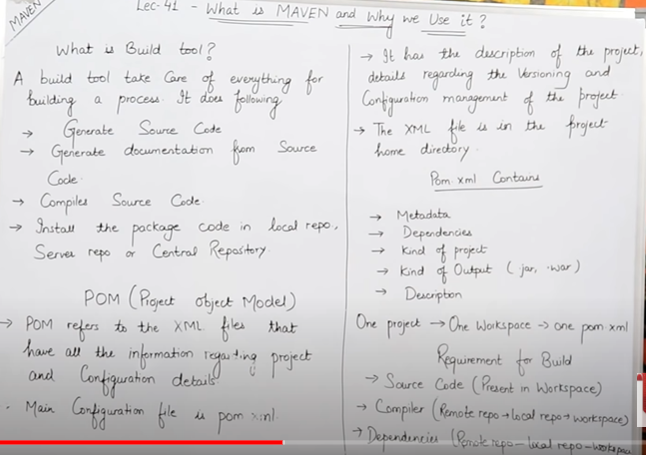 MAVEN
Lec-41 - What is MAVEN and Why we Use it?
What is Build tool?
A build tool take Care of everything for
building a process. It does following
→ Generate Source Code
→ Generate documentation from Source
Code.
→ Compiles Source Code.
→ Install the package code in local repo,
Server repo or Central Repository.
POM (Project object Model)
→ POM refers to the XML files that
have all the information regarding project
and Configuration details
. Main Configuration file is pom xml.
→ It has the description of the project,
details regarding the Versioning and
Configuration management of the project.
→ The XML file is in the project
home directory.
Pom xml Contains
→ Metadata
→ Dependencies
→ Kind of project
→ Kind of Output (jar, .war)
→ Description
One project → One Workspace → one pom xml
Requirement for Build
→ Source Code (Present in Workspace)
→ Compiler (Remote repo → local repo → workspace)
→ Dependencies (Remote repo – local repo – workspace